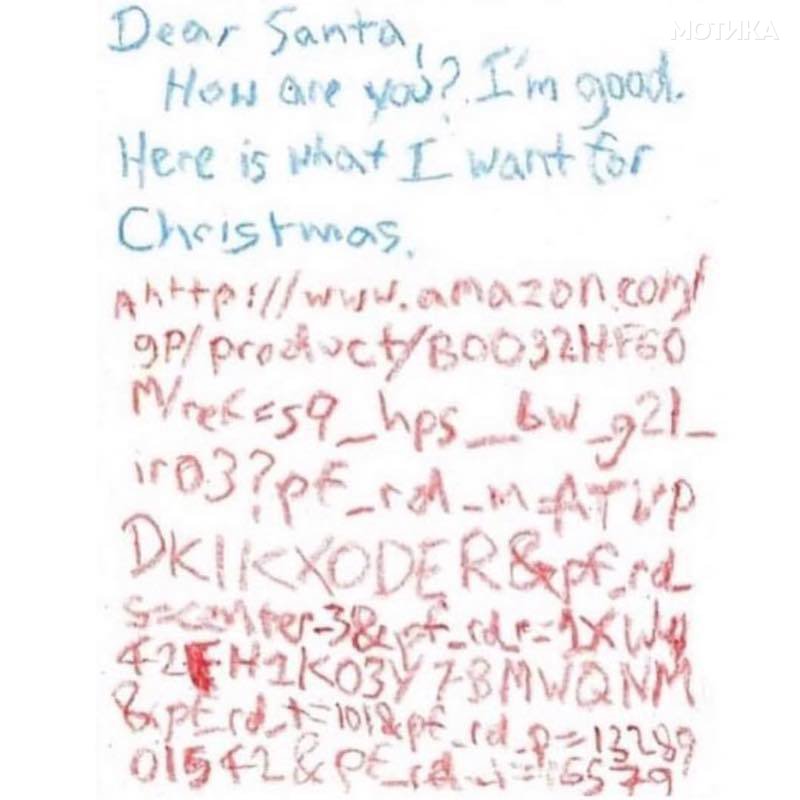 МОТИКА
Dear Santa,
How are you? I'm good.
Here is what I want for
Christmas.
Ahttp://www.amazon.com/
gp/product/B0032HF60
M/ref=s9_hps_bw_g21_
ir03?pf_rd_m=ATVP
DKIKXODER&pf_rd_
s=center-3&pf_rd_r=1XWy
42FH1K03Y78MWQNM
&pf_rd_t=101&pf_rd_p=13289
01542&pf_rd_i=16579